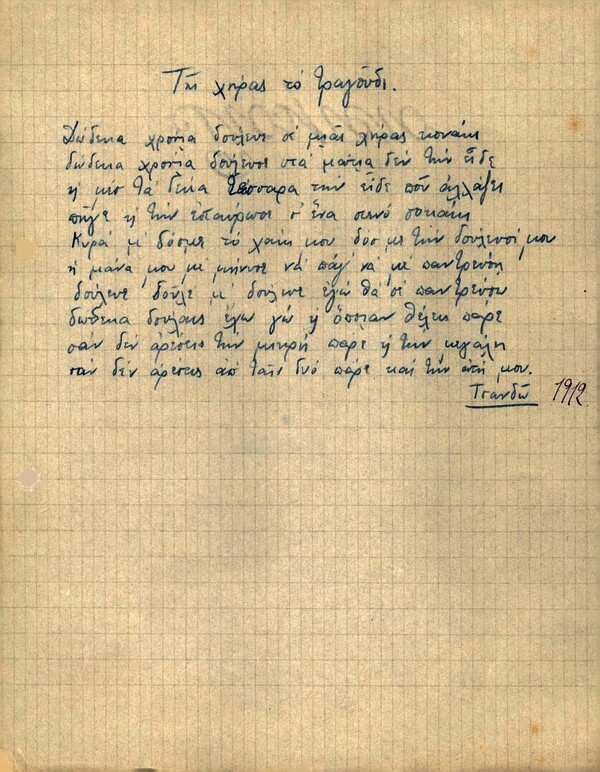 Τῆς χήρας τὸ τραγοῦδι.
Δώδεκα χρόνια δούλευε σὲ μιᾶς χήρας κονάκι
δώδεκα χρόνια δούλευε στὰ μάτια δὲν τὴν εἶδε
κὶ μὲσ τὰ δεκατέσσαρα τὴν εἶδε ποῦ ἀλλάζει
πῆγε κὶ τὴν ἐσταύρωσε σ' ἕνα στενὸ σοκάκι
Κυρά μ' δόσμε τὸ χάκι μου δόσ με τὴν δούλεψί μου
ἡ μάνα μου μὲ μήνυσε νὰ πάγ νὰ μὲ παντρεύση
δούλευε δοῦλε μ' δούλευε ἐγὼ θὰ σὲ παντρεύσω
δώδεκα δούλαις ἔχω γώ κὶ ὅποιαν θέλεις πάρε
σὰν δὲν ἀρέσεις τὴν μικρὴ πάρε κὶ τὴν μεγάλη
σὰν δὲν ἀρέσεις ἀπ ταῖς δυὸ πάρε καὶ τὴν ἀτή μου.
Τσανδῶ 1912.